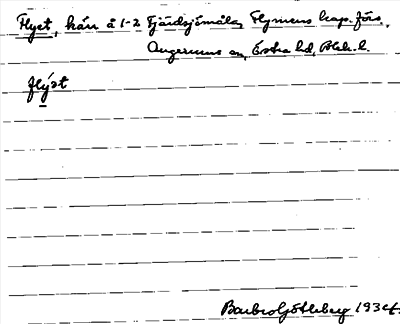 Flyet, kärr å 1-2 Fjärdsjömåla, Flymens kap.förs.,
Augerums sn, Östra hd, Blek. l.
flýət
Barbro Götheberg 1934.